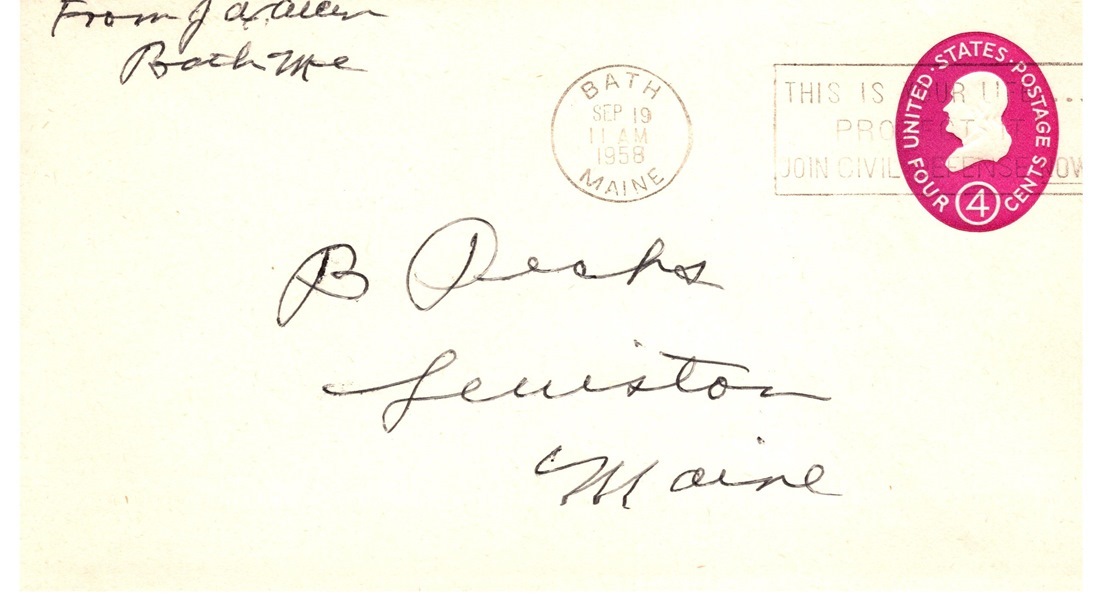 From J A Allen
Bath Me
BATH
SEP 19
11 AM
1958
MAINE
THIS IS YOUR LIFE...
PROTECT IT
JOIN CIVIL DEFENSE NOW
UNITED·STATES·POSTAGE
FOUR 4 CENTS
B Pecks
Lewiston
Maine